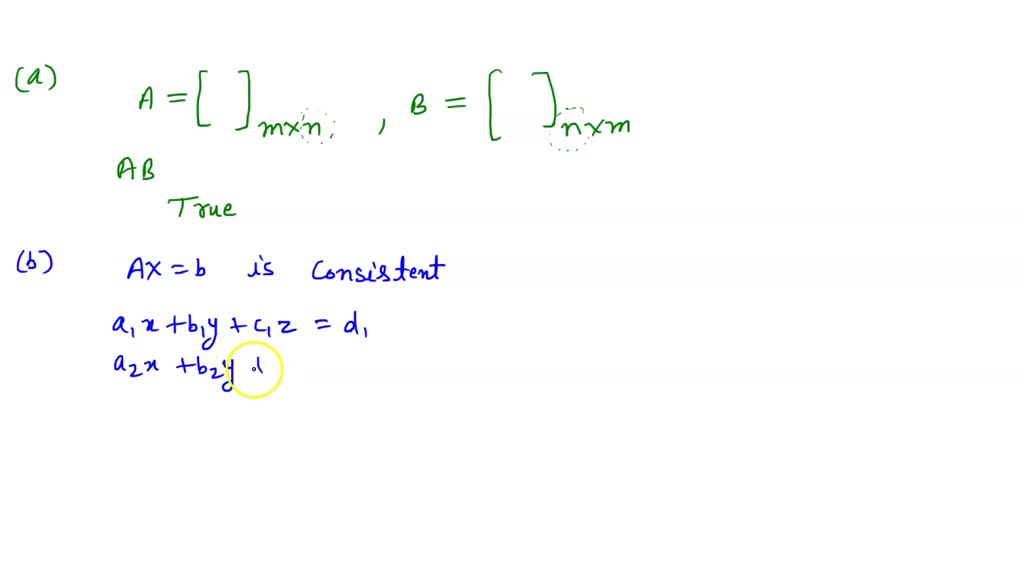 (a) A = [ ]m×n , B = [ ]n×m
AB
True
(b) AX = b is Consistent
a₁x + b₁y + c₁z = d₁
a₂x + b₂y